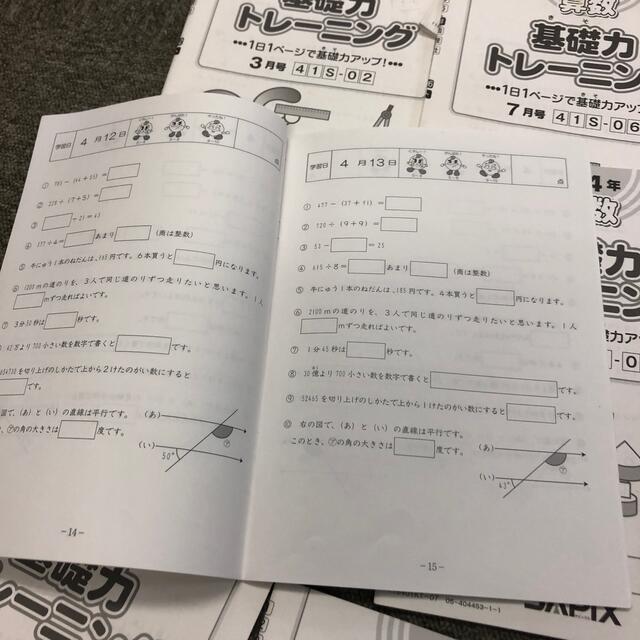 基礎力
トレーニング
•••1日1ページで基礎力アップ!•••
3月号 41S-02
算数
基礎力
トレーニング
•••1日1ページで基礎力アップ!
7月号 41S-06
4年
学習日 4月12日
点
② 228÷(7+5)=
④ 177÷4= あまり (商は整数)
⑤ 牛にゅう1本のねだんは、185円です。6本買うと 円になります。
⑥ 1200mの道のりを、3人で同じ道のりずつ走りたいと思います。1人
mずつ走ればよいです。
⑦ 3分30秒は 秒です。
42万より700小さい数を数字で書くと です。
を切り上げのしかたで上から2けたのがい数にすると
です。
の図で、(あ)と(い)の直線は平行です。
、㋐の角の大きさは 度です。
(あ)
㋐
(い)
50°
-14-
学習日 4月13日
点
① 477-(37+91)=
② 720÷(9+9)=
③ 53- =25
④ 615÷8= あまり (商は整数)
⑤ 牛にゅう1本のねだんは、185円です。4本買うと 円になります。
⑥ 2100mの道のりを、3人で同じ道のりずつ走りたいと思います。1人
mずつ走ればよいです。
⑦ 1分45秒は 秒です。
⑧ 30億より700小さい数を数字で書くと です。
⑨ 52465を切り上げのしかたで上から1けたのがい数にすると です。
⑩ 右の図で、(あ)と(い)の直線は平行です。
このとき、㋐の角の大きさは 度です。
(あ)
㋐
(い)
43°
-15-
基礎力
トレーニング
SAPIX